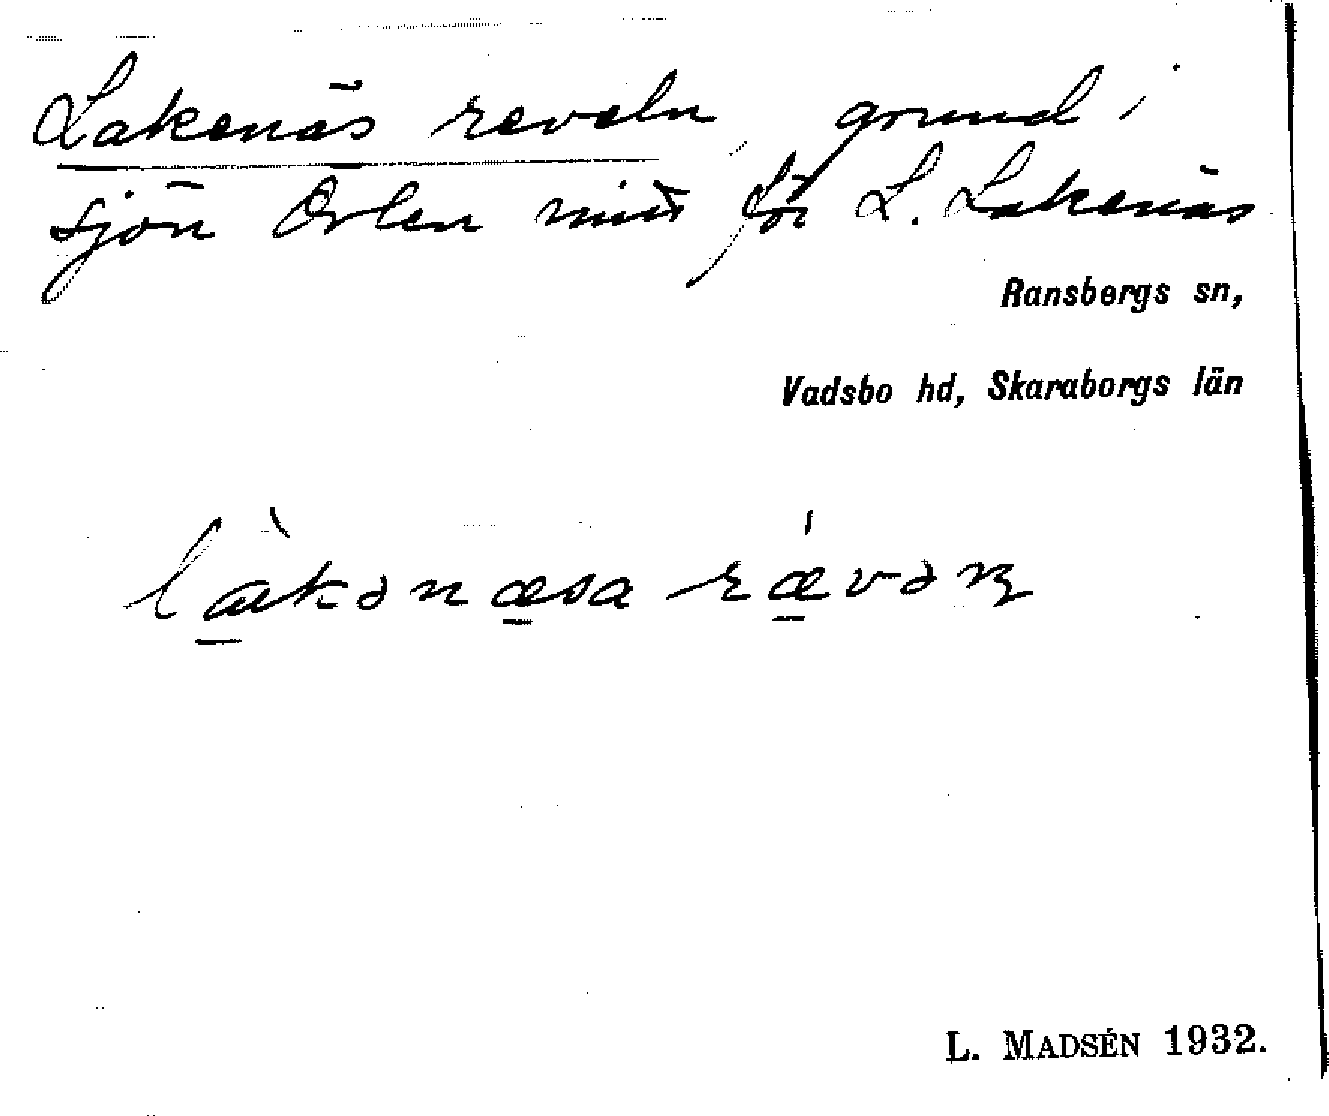 Lakenäs reveln grund i
sjön Örlen mitt för L. Lakenäs
Ransbergs sn,
Vadsbo hd, Skaraborgs län
lækənæsa rævəɳ
L. MADSÉN 1932.